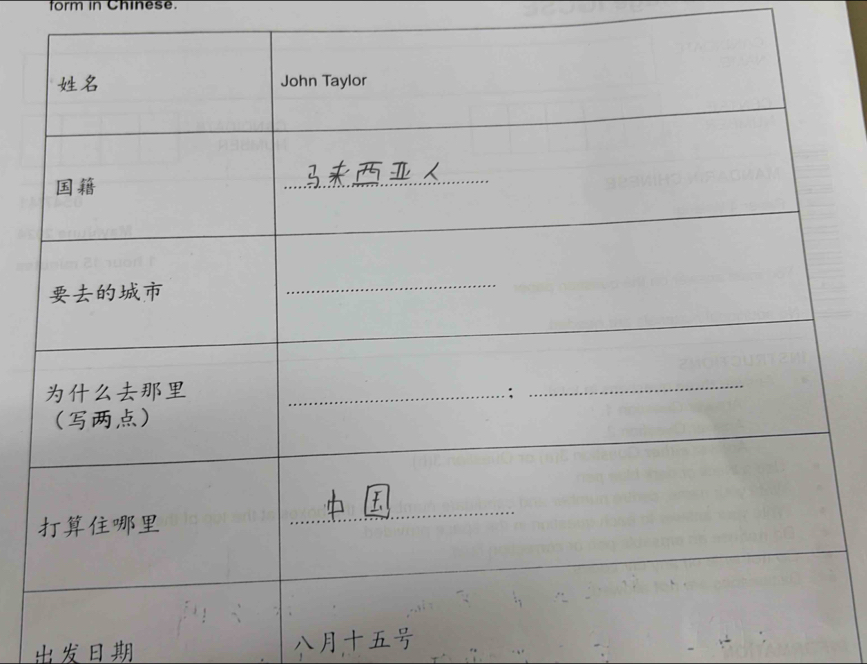 form in Chinese.
姓名 John Taylor
国籍 马来西亚人
要去的城市
为什么去那里
（写两点） ;
打算住哪里 中国
出发日期 八月十五号